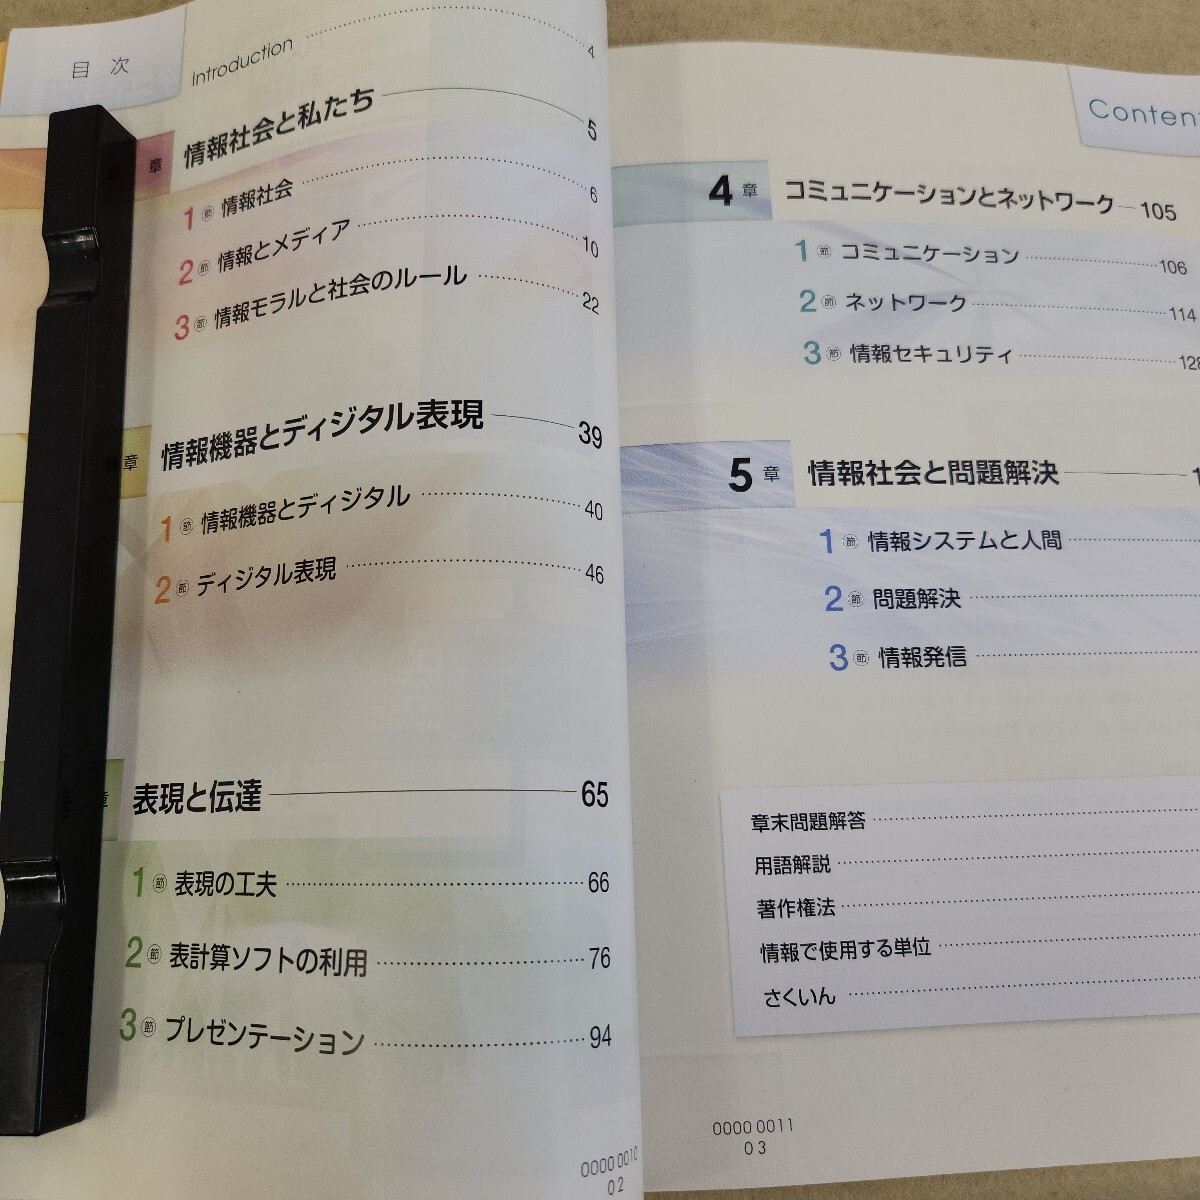 目次
Introduction 4
章 情報社会と私たち 5
1節 情報社会 6
2節 情報とメディア 10
3節 情報モラルと社会のルール 22
章 情報機器とディジタル表現 39
1節 情報機器とディジタル 40
2節 ディジタル表現 46
章 表現と伝達 65
1節 表現の工夫 66
2節 表計算ソフトの利用 76
3節 プレゼンテーション 94
0000 0010
02
Conten
4章 コミュニケーションとネットワーク 105
1節 コミュニケーション 106
2節 ネットワーク 114
3節 情報セキュリティ 128
5章 情報社会と問題解決
1節 情報システムと人間
2節 問題解決
3節 情報発信
章末問題解答
用語解説
著作権法
情報で使用する単位
さくいん
0000 0011
03